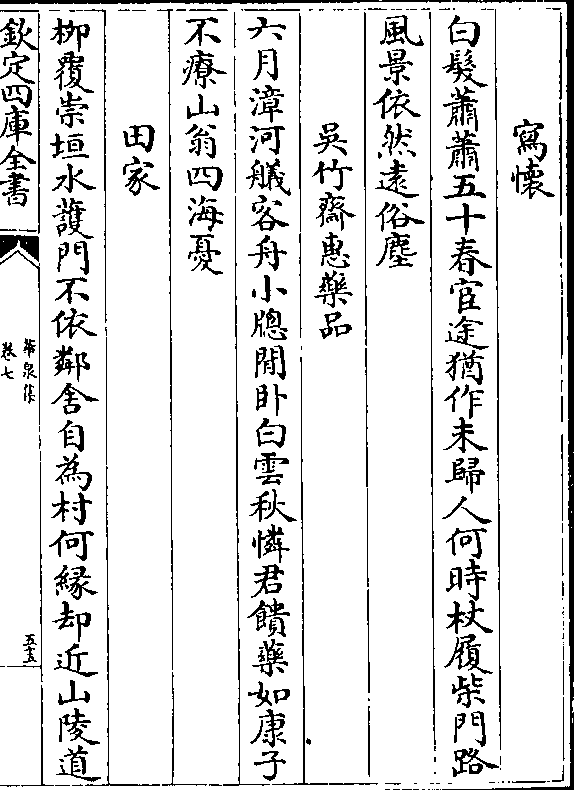 寫懷
白髮蕭蕭五十春官途猶作未歸人何時杖履柴門路
風景依然遠俗塵
吳竹齋惠藥品
六月漳河艤客舟小牕閒卧白雲秋憐君饋藥如康子
不療山翁四海憂
田家
栁覆崇垣水護門不依鄰舍自為村何縁却近山陵道
欽定四庫全書
卷七